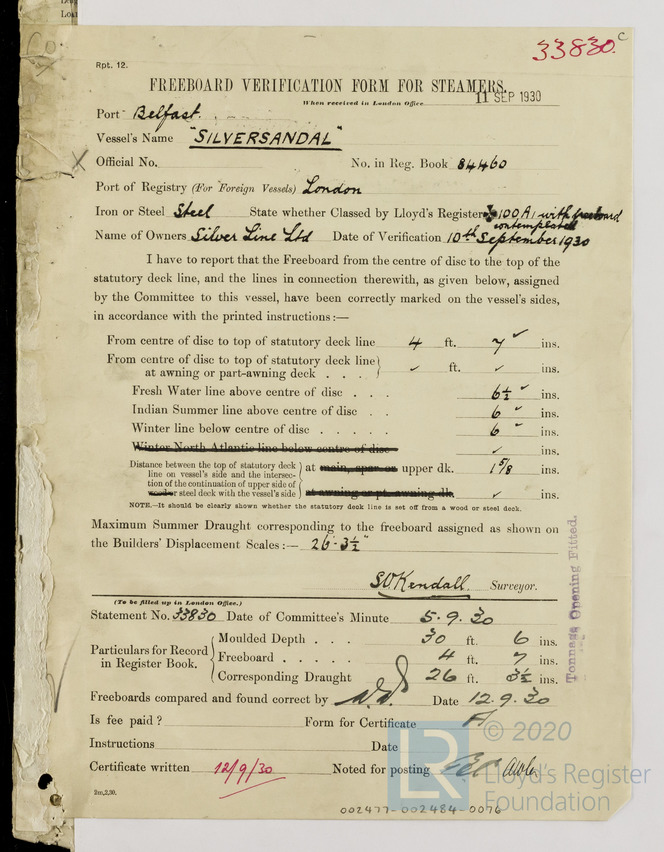 33830.
c
Rpt. 12.
FREEBOARD VERIFICATION FORM FOR STEAMERS.
When received in London Office 11 SEP 1930
Port Belfast.
Vessel's Name "SILVERSANDAL"
Official No. No. in Reg. Book 84460
Port of Registry (For Foreign Vessels) London
Iron or Steel Steel State whether Classed by Lloyd's Register ✠100A1 with freeboard
contemplated
Name of Owners Silver Line Ltd Date of Verification 10th September 1930
I have to report that the Freeboard from the centre of disc to the top of the
statutory deck line, and the lines in connection therewith, as given below, assigned
by the Committee to this vessel, have been correctly marked on the vessel's sides,
in accordance with the printed instructions:—
From centre of disc to top of statutory deck line 4 ft. 7 ✓ ins.
From centre of disc to top of statutory deck line
at awning or part-awning deck . . . ✓ ft. ✓ ins.
Fresh Water line above centre of disc . . . 6½ ✓ ins.
Indian Summer line above centre of disc . . 6 ✓ ins.
Winter line below centre of disc . . . . . 6 ✓ ins.
Winter North Atlantic line below centre of disc ✓ ins.
Distance between the top of statutory deck
line on vessel's side and the intersec-
tion of the continuation of upper side of
wood or steel deck with the vessel's side
at main, spar or upper dk. 1 5/8 ins.
at awning or pt. awning dk. ✓ ins.
NOTE.—It should be clearly shown whether the statutory deck line is set off from a wood or steel deck.
Maximum Summer Draught corresponding to the freeboard assigned as shown on
the Builders' Displacement Scales:— 26-3½"
Kendall. Surveyor.
Tonnage Opening Fitted.
(To be filled up in London Office.)
Statement No. 33830 Date of Committee's Minute 5.9.30
Particulars for Record
in Register Book.
Moulded Depth . . . 30 ft. 6 ins.
Freeboard . . . . . 4 ft. 7 ins.
Corresponding Draught 26 ft. 3½ ins.
Freeboards compared and found correct by Date 12.9.30
Is fee paid? Form for Certificate
Instructions Date
Certificate written 12/9/30 Noted for posting
2m,2,30.
LR
© 2020
Lloyd's Register
Foundation
002477-002484-0076